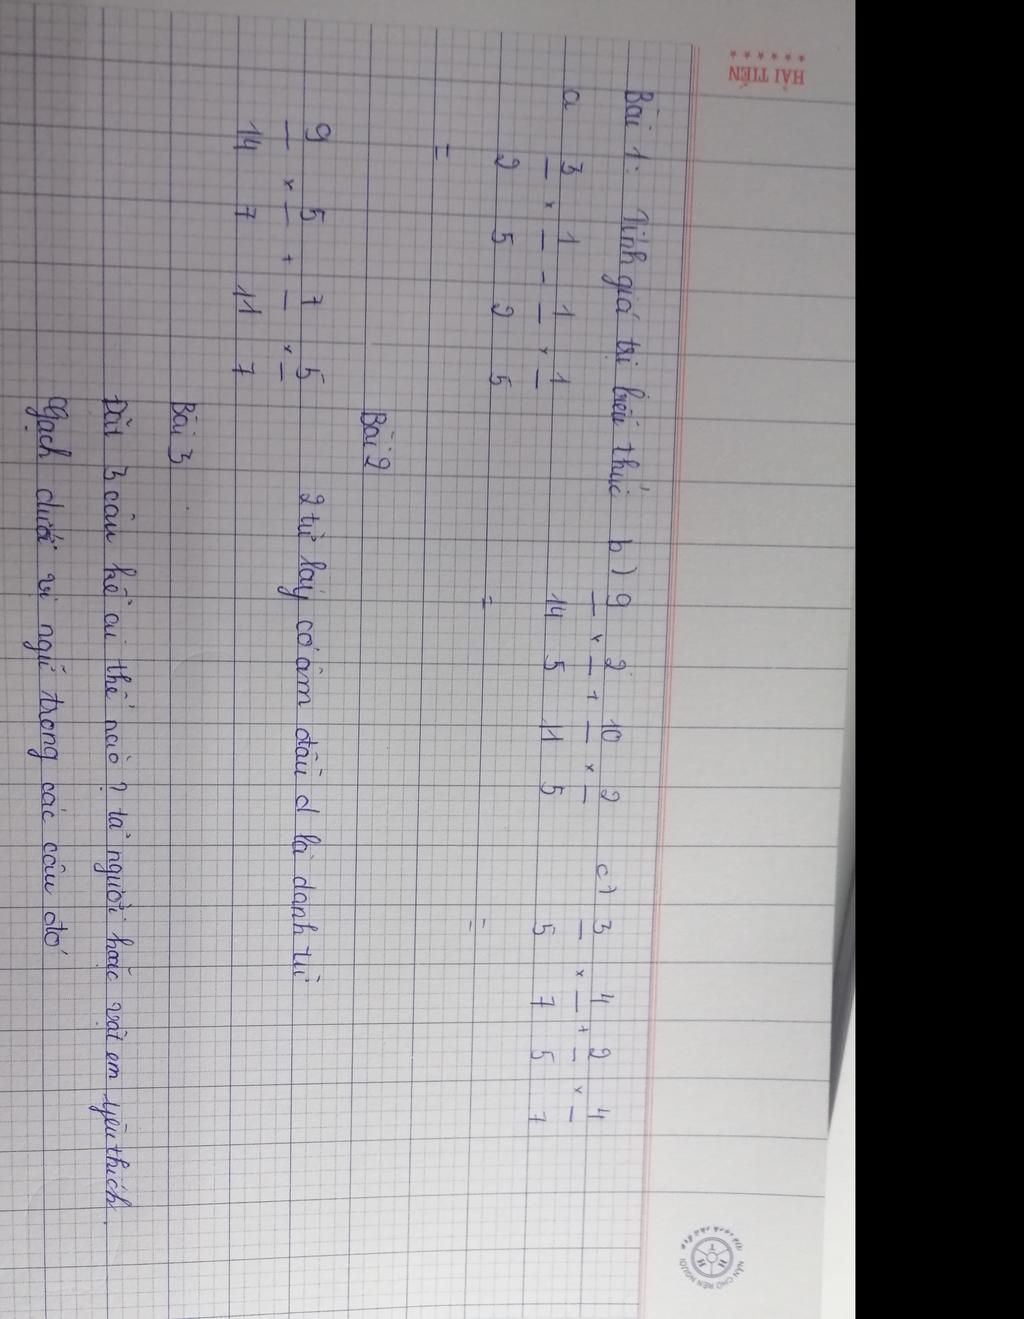 HẢI TIẾN
Bài 1: Tính giá trị biểu thức b) 9/14 × 2/5 + 10/11 × 2/5 c) 3/5 × 4/7 + 2/5 × 4/7
a 3/2 × 1/5 - 1/2 × 1/5
= = =
Bài 2
9/14 × 5/7 + 7/11 × 5/7 2 từ láy có âm đầu d là danh từ
Bài 3
Đặt 3 câu kể ai thế nào? tả người hoặc vật em yêu thích.
Gạch dưới vị ngữ trong các câu đó